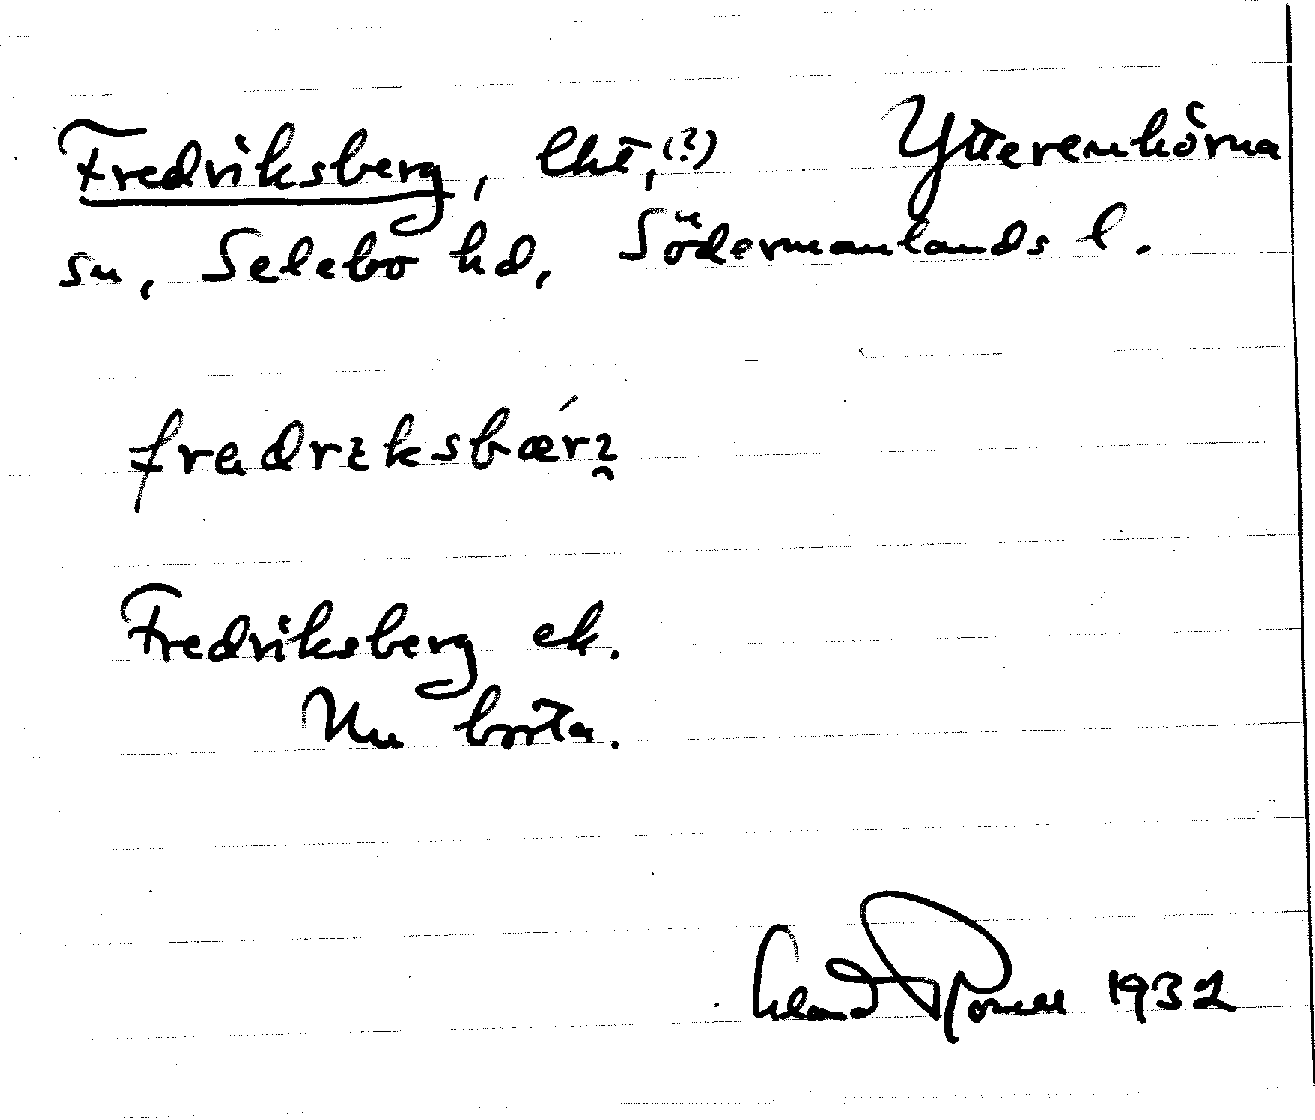 Fredriksberg, lht, (?) Ytterenhörna
sn, Selebo hd, Södermanlands l.
fredrɩksbǽrȝ
Fredriksberg ek.
Nu borta.
1932